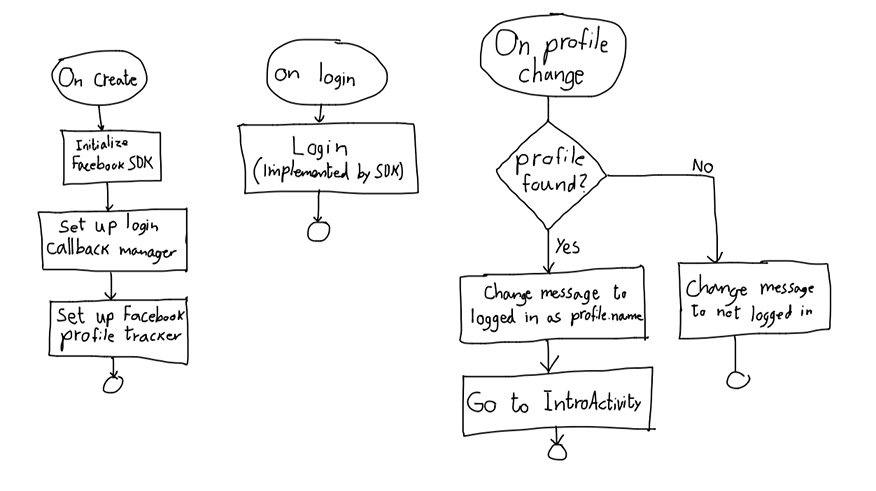 On create
Initialize
Facebook SDK
Set up login
callback manager
Set up Facebook
profile tracker
on login
Login
(Implemented by SDK)
On profile
change
profile
found?
No
Yes
Change message to
logged in as profile.name
Go to IntroActivity
Change message
to not logged in